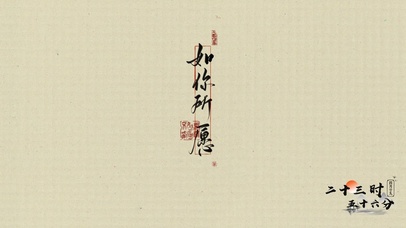 如你所愿
二十三时
五十六分